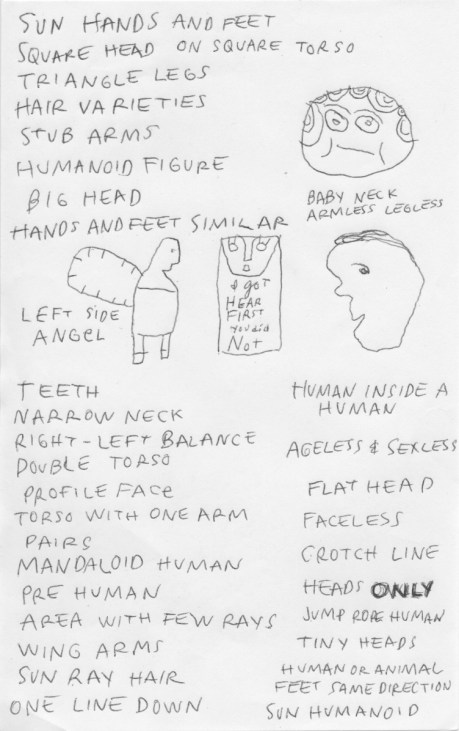 SUN HANDS AND FEET
SQUARE HEAD ON SQUARE TORSO
TRIANGLE LEGS
HAIR VARIETIES
STUB ARMS
HUMANOID FIGURE
BIG HEAD
HANDS AND FEET SIMILAR
BABY NECK
ARMLESS LEGLESS
LEFT SIDE
ANGEL
I GOT
HEAR
FIRST
You did
Not
TEETH
NARROW NECK
RIGHT-LEFT BALANCE
DOUBLE TORSO
PROFILE FACE
TORSO WITH ONE ARM
PAIRS
MANDALOID HUMAN
PRE HUMAN
AREA WITH FEW RAYS
WING ARMS
SUN RAY HAIR
ONE LINE DOWN
HUMAN INSIDE A
HUMAN
AGELESS & SEXLESS
FLAT HEAD
FACELESS
CROTCH LINE
HEADS ONLY
JUMP ROPE HUMAN
TINY HEADS
HUMAN OR ANIMAL
FEET SAME DIRECTION
SUN HUMANOID